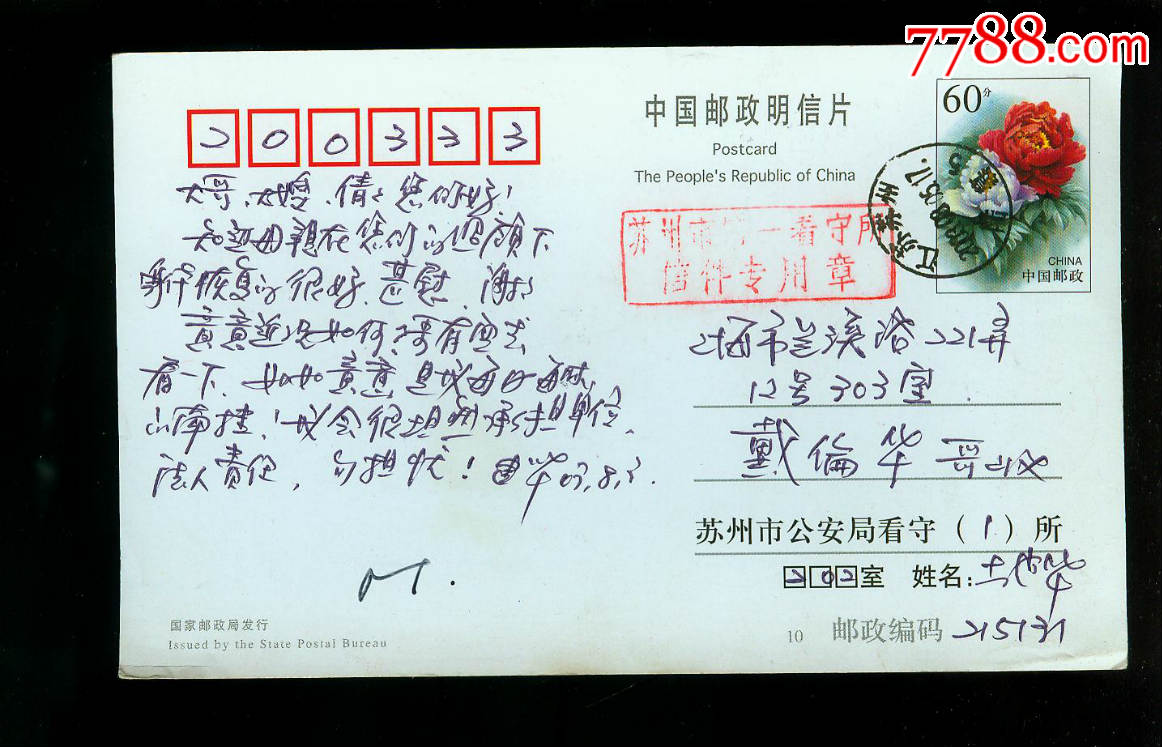 7788.com
200333
中国邮政明信片
Postcard
The People's Republic of China
60分
CHINA
中国邮政
江苏苏州
苏州市第一看守所
信件专用章
大哥、大嫂、倩倩您们好!
知道母亲在您们的照顾下
恢复的很好、甚慰、谢谢
近况如何、有空去
看一下、
我会很坦然承担单位
法人责任,勿担忧! 03.8.3.
上海市兰溪路221弄
12号303室
戴倫华 哥收
苏州市公安局看守(1)所
202室 姓名:
10 邮政编码 215131
国家邮政局发行
Issued by the State Postal Bureau